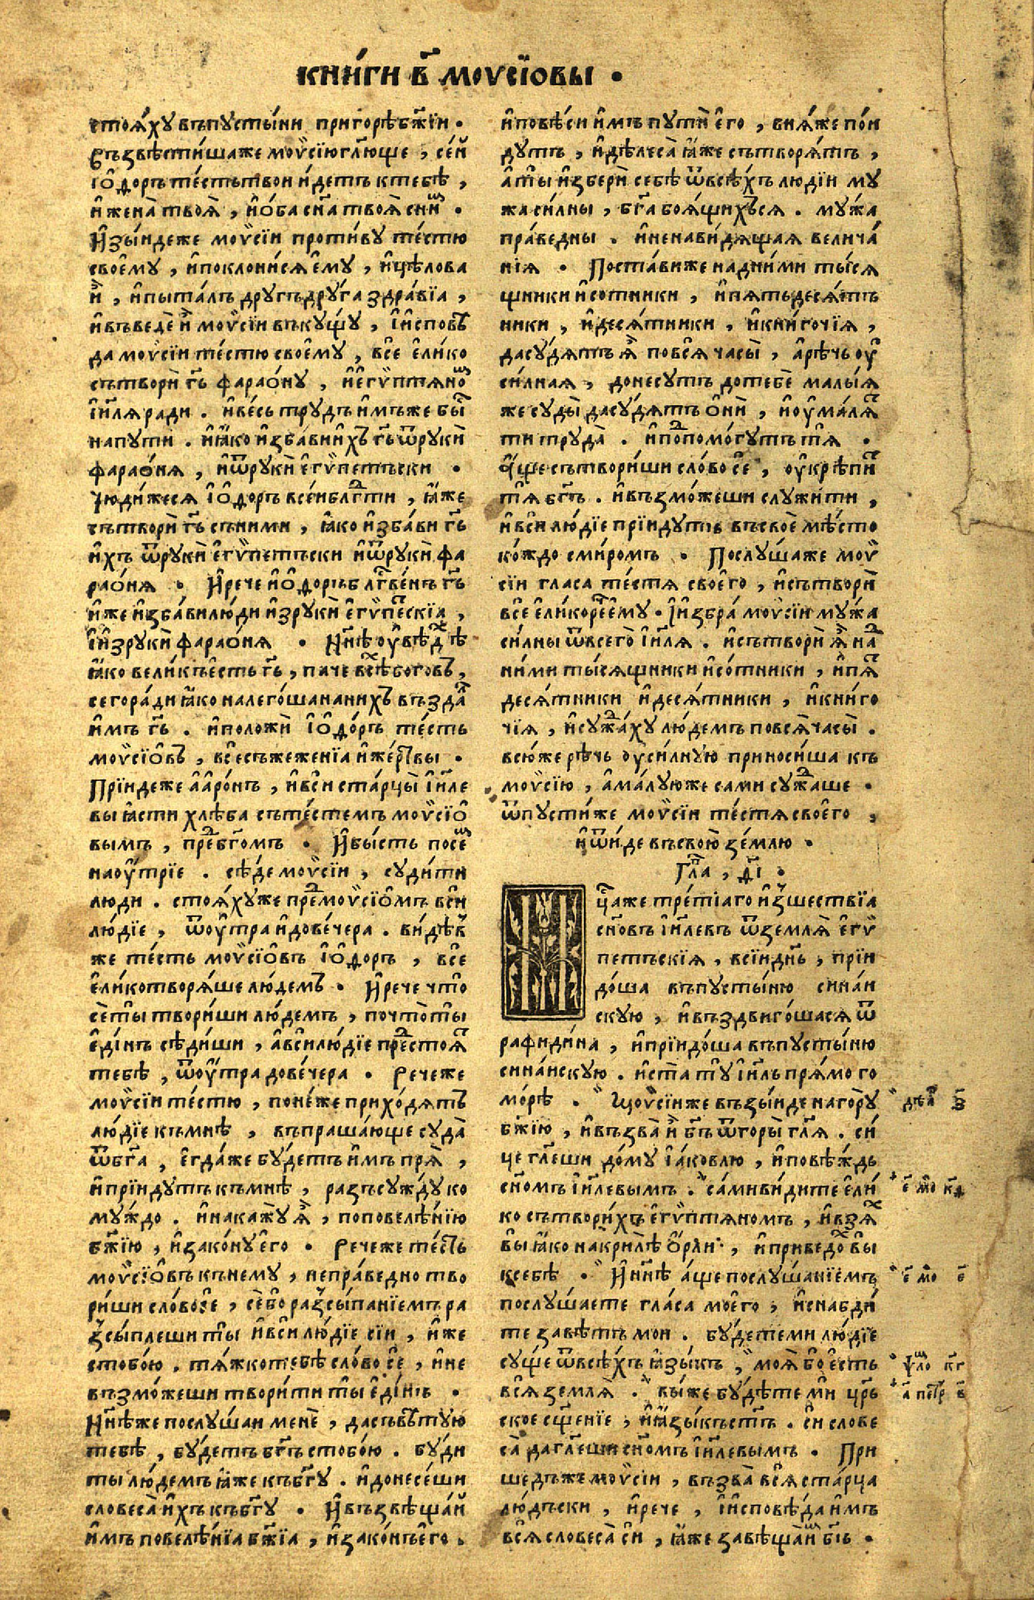 кни́ги в҃ моѵсїовы .
стоя́хꙋ въпꙋсты́ни пригорѣ бж҃їи .
Възвѣсти́шаже моѵ̈сїю гл҃юще , се́й
і҆ѳдоръ те́стьтвои и҆детъ ктебѣ̀ ,
и҆жена̀ твоѧ̀ , и҆о́ба сн҃а твоѧ̀ сни́м .
И҆зы́идеже моѵ̈сїи проти́вꙋ те́стю
своемꙋ , и҆поклони́сѧ е҆мꙋ , и҆цѣлова
и҆̀ , и҆пыта́лъ дрꙋгъ дрꙋ́га здра́вїа ,
и҆въведѐ и҆̀ моѵ̈сїи въкꙋ́щꙋ , і҆исповѣ́
да моѵ̈сїи те́стю своемꙋ , всѐ е҆ли́ко
сътворѝ гь҃ фараѡ́нꙋ , и҆е҆гѵ́птѧно́м
і҆и҃лѧ ради . и҆весь трꙋ́дъ и҆мъже бы́
напꙋти . и҆ꙗ҆́ко и҆зба́ви и҆̀хъ гь҃ ѿрꙋкѝ
фараѡ́нѧ , и҆ѿрꙋкѝ е҆гѵ́петъски .
Чюди́жесѧ і҆ѳдоръ всеи бл҃гти , ꙗ҆́же
сътворѝ гь҃ сни́ми , ꙗ҆́ко и҆зба́ви гь҃
и҆́хъ ѿрꙋкѝ е҆гѵ́петъски и҆ѿрꙋкѝ фа
раѡ́нѧ . И҆рече и҆ѳдоръ бл҃гве́нъ гь҃
и҆́же и҆зба́ви лю́ди и҆зрꙋкѝ е҆гѵ́пескїа ,
і҆и҆зрꙋкѝ фараѡ́нѧ . Нн҃ѣ ѹ҆вѣдѣ
ꙗ҆́ко вели́къ е҆сть гь҃ , па́че всѣ́хъ богѡ́въ ,
сегора́ди ꙗ҆́ко налего́ша нани́хъ въздасть
и҆́мъ гь҃ . и҆положѝ і҆ѳдоръ те́сть
моѵ̈сїѡ́въ , всесъжеже́нїа и҆же́ртвы .
Прїи́деже а҆арѡ́нъ , и҆вси́ ста́рцы і҆и҃ле
вы ꙗ҆́сти хлѣ́ба съте́стемъ моѵ̈сїѡ́
вымъ , пред бг҃омъ . И҆бы́сть посе́м
наѹ́трїе . сѣ́де моѵ̈сїи , сꙋди́ти
люди . стоѧ́хꙋже пре́моѵ̈сїѡ́мъ всѝ
лю́дїе , ѿѹ́тра и҆дове́чера . ви́дѣв
же те́сть моѵ̈сїѡ́въ і҆ѳдоръ , всѐ
е҆ли́котворѧ́ше лю́демъ . И҆рече что̀
сѐ ты̀ твори́ши лю́демъ , почто̀ ты̀
е҆ди́нъ сѣди́ши , а҆вси́ лю́дїе престоѧ́т
тебѣ , ѿѹ́тра дове́чера . Речеже
моѵ̈сїи те́стю , поне́же прихо́дѧтъ
лю́дїе къмнѣ̀ , въпраша́юще сꙋда̀
ѿбг҃а , е҆гда́же бꙋ́детъ и҆́мъ прѧ̀ ,
и҆прїи́дꙋтъ къмнѣ̀ , разъсꙋ́ждꙋ ко
мꙋ́ждо . и҆накажꙋ́ ѧ҆̀ , поповелѣ́нїю
бж҃їю , и҆зако́нꙋ е҆го . Речеже те́сть
моѵ̈сїѡ́въ кънемꙋ̀ , непра́ведно тво
ри́ши сло́во се́ , се́бо разсы́панїемъ ра
зсы́плеши ты̀ и҆вси́ лю́дїе сїи , и҆́же
стобо́ю . тѧ́жко тебѣ̀ сло́во сѐ , и҆не
възмо́жеши твори́ти ты̀ е҆ди́нъ .
Нн҃ѣже послꙋ́шаи менѐ , дасъвѣ́тꙋю
тебѣ̀ , бꙋ́детъ бг҃ъ стобо́ю . бꙋ́ди
ты̀ лю́демъ ꙗ҆́же къбг҃ꙋ . и҆донесе́ши
словеса̀ и҆́хъ къбг҃ꙋ . И҆възвѣща́й
и҆́мъ повелѣ́нїа бж҃їа , и҆зако́нъ е҆го .
и҆повѣ́си и҆́мъ пꙋти е҆го , внѧ́же пои́
дꙋтъ , и҆дѣлеса̀ ꙗ҆́же сътворѧ́тъ ,
а҆ты̀ и҆зберѝ себѣ̀ ѿвсѣ́хъ людїи мꙋ́
жа си́лны , бг҃а боѧ́щихъсѧ . мꙋ́жа
пра́ведны . и҆ненави́дѧщаѧ велича́
нїѧ . Поста́виже надни́ми ты́сѧ
щники и҆со́тники , и҆пѧтьдесѧ́тъ
ники , и҆десѧ́тники , и҆кни́гочїѧ ,
дасꙋ́дѧтъ ѧ҆̀ повсѧ̀ часы̀ , а҆рѣ́чь ѹ҆
си́лнаѧ , донесꙋтъ дотебѐ малы́ѧ
же сꙋды̀ дасꙋ́дѧтъ ѻ҆нѝ , и҆ѹ҆малѧ́т
ти трꙋда̀ . и҆попомо́гꙋтъ тѧ̀ .
А҆́ще сътвори́ши сло́во сѐ , ѹ҆крѣпи́т
тѧ̀ бг҃ъ . и҆възмо́жеши слꙋжи́ти ,
и҆вси́ лю́дїе прїи́дꙋтъ въсвоѐ мѣ́сто
ко́ждо сми́ромъ . Послꙋ́шаже моѵ̈
сїи гла́са те́стѧ своего , и҆сътворѝ
всѐ е҆ли́ко рече е҆мꙋ . И҆збра́ моѵ̈сїи мꙋ́жа
си́лны ѿвсего і҆и҃лѧ . и҆сътворѝ ѧ҆̀ над
ни́ми ты́сѧщники и҆со́тники , и҆пѧт
десѧ́тники и҆десѧ́тники , и҆кни́го
чїѧ , и҆сꙋжда́хꙋ лю́демъ повсѧ̀ часы̀ .
всю́же рѣ́чь ѹ҆си́лнꙋю приноси́ша къ
моѵ̈сїю , а҆ма́лꙋюже са́ми сꙋжда́ше .
ѿпꙋсти́же моѵ̈сїи те́стѧ своего ,
и҆ѿи́де въсвою̀ зе́млю .
Гла , д҃і .
Мц҃аже тре́тїаго и҆зшествїа
сн҃овъ і҆и҃левъ ѿземлѧ̀ е҆гѵ́
петъскїѧ , всїи́ днь , прїи
до́ша въпꙋсты́ню сина́и
скꙋю , и҆въздвиго́шасѧ ѿ
рафиди́на , и҆прїидо́ша въпꙋсты́ню
сина́искꙋю . и҆ста̀ тꙋ̀ і҆и҃ль прѧ́мо го
мо́рѣ . Моѵ̈сїиже възы́иде наго́рꙋ
бж҃їю , и҆възва̀ и҆̀ бг҃ъ ѿгоры̀ гл҃ѧ . си́
це гл҃еши до́мꙋ і҆а́ковлю , и҆повѣ́ждь
сн҃омъ і҆и҃левымъ . са́ми ви́дите е҆ли́
ко сътвори́хъ е҆гѵ́птѧномъ , и҆взѧ́х
вы̀ ꙗ҆́ко накрилѣ̀ ѻ҆рли , и҆приведо́х вы
ксебѣ̀ . И҆нн҃ѣ а҆́ще послꙋша́нїемъ
послꙋ́шаете гла́са моего , и҆снабди
те завѣ́тъ мои . бꙋ́детеми лю́дїе
сꙋ́ще ѿвсѣ́хъ ꙗ҆зы́къ , моѧ́ бо е҆сть
всѧ̀ землѧ̀ . вы́же бꙋ́дѣте мѝ цр҃ь
ское сщ҃енїе , и҆ꙗ҆зы́къ ст҃ъ . сѝ слове
са̀ да гл҃еши сн҃омъ і҆и҃левымъ . При
ше́дъже моѵ̈сїи , възва̀ всѧ̀ ста́рца
лю́дьски , и҆рече , і҆исповѣ́да и҆́мъ
всѧ̀ словеса̀ сѝ , ꙗ҆́же завѣща̀ и҆м бг҃ъ .